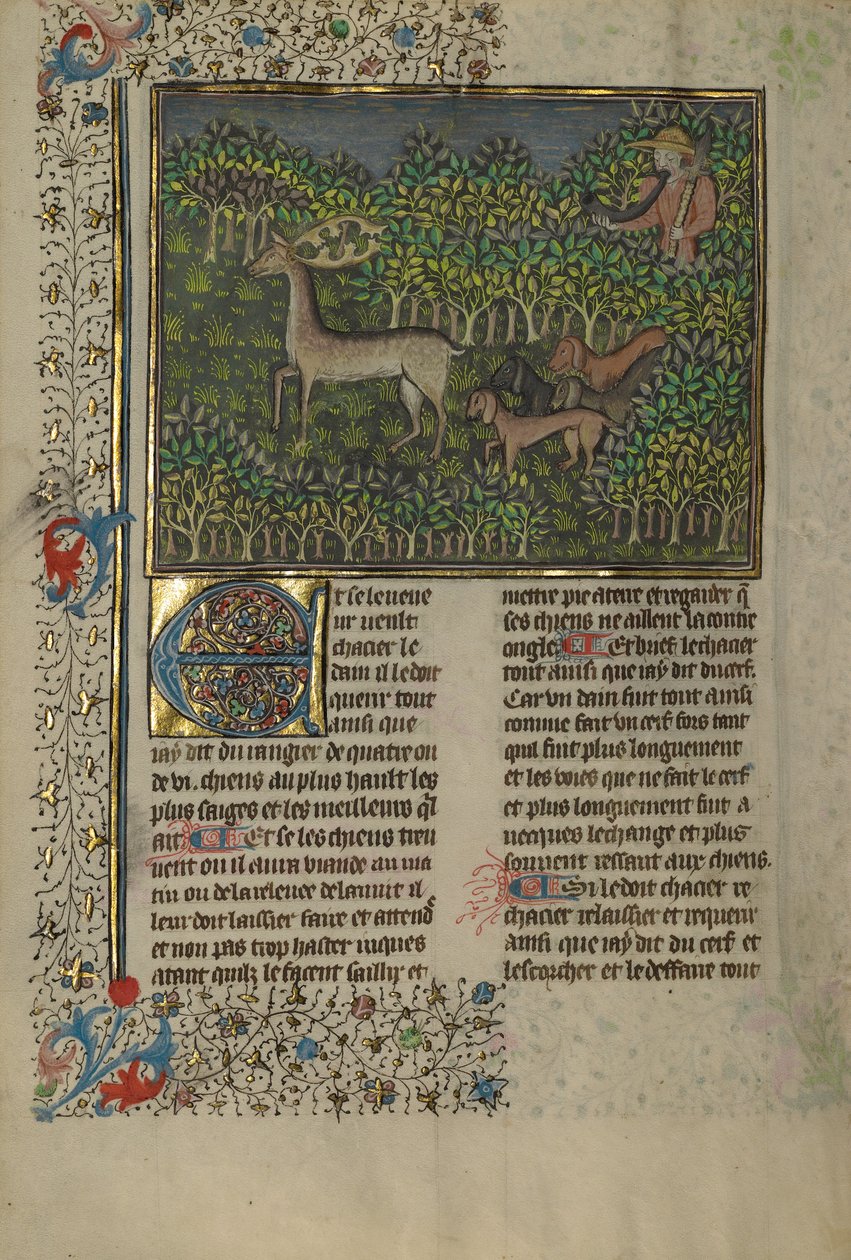 Et se le vene
ur veult
chacier le
dain il le doit
querir tout
ainsi que
iay dit du rangier de quatre ou
de vi. chiens au plus hault les
plus saiges et les meilleurs ql
ait Et se les chiens treu
uent ou il aura viande au ma
tin ou de la releuee de la nuit il
leur doit laissier faire et attendr
et non pas trop haster iusques
atant quilz le facent saillir et
mettre pie a terre et regarder q̃
ses chiens ne aillent la contre
ongle Et brief le chacier
tout ainsi que iay dit du cerf.
Car vn dain fuit tout ainsi
comme fait vn cerf fors tant
quil fuit plus longuement
et les voies que ne fait le cerf
et plus longuement fuit a
uecques le change et plus
souuent ressaut aux chiens.
Si le doit chacier re
chacier relaissier et requerir
ainsi que iay dit du cerf et
lescorcher et le deffaire tout